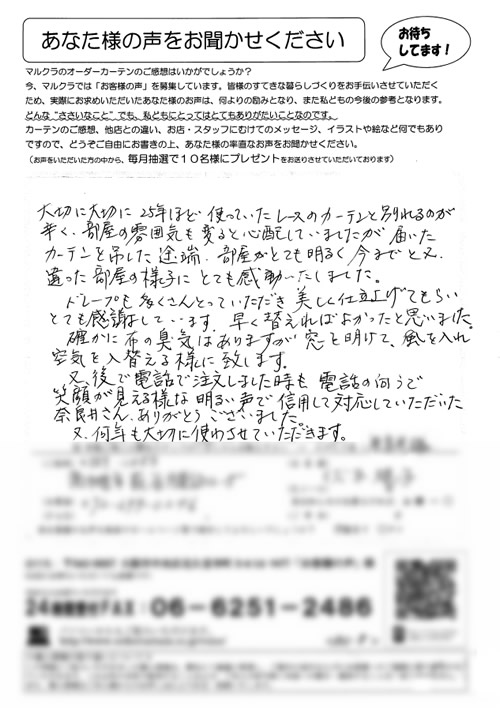 あなた様の声をお聞かせください
お待ち
してます!
マルクラのオーダーカーテンのご感想はいかがでしょうか?
今、マルクラでは「お客様の声」を募集しています。皆様のすてきな暮らしづくりをお手伝いさせていただく
ため、実際にお求めいただいたあなた様のお声は、何よりの励みとなり、また私どもの今後の参考となります。
どんな“ささいなこと”でも、私どもにとってはとてもありがたいことなのです。
カーテンのご感想、他店との違い、お店・スタッフにむけてのメッセージ、イラストや絵など何でもあり
ですので、どうぞご自由にお書きの上、あなた様の率直なお声をお聞かせください。
(お声をいただいた方の中から、毎月抽選で10名様にプレゼントをお送りさせていただいております)
大切に大切に25年ほど使っていたレースのカーテンと別れるのが
辛く、部屋の雰囲気も変ると心配していましたが届いた
カーテンを吊した途端、部屋がとても明るく今までと又
違った部屋の様子にとても感動いたしました。
ドレープも多くさんとっていただき美しく仕立上げてもらい
とても感謝しています。早く替えればよかったと思いました。
確かに布の臭気はありますが窓を明けて、風を入れ
空気を入替える様に致します。
又、後で電話で注文しました時も電話の向うで
笑顔が見える様な明るい声で信用して対応していただいた
奈良井さん、ありがとうございました。
又、何年も大切に使わさせていただきます。
24時間受付FAX:06-6251-2486